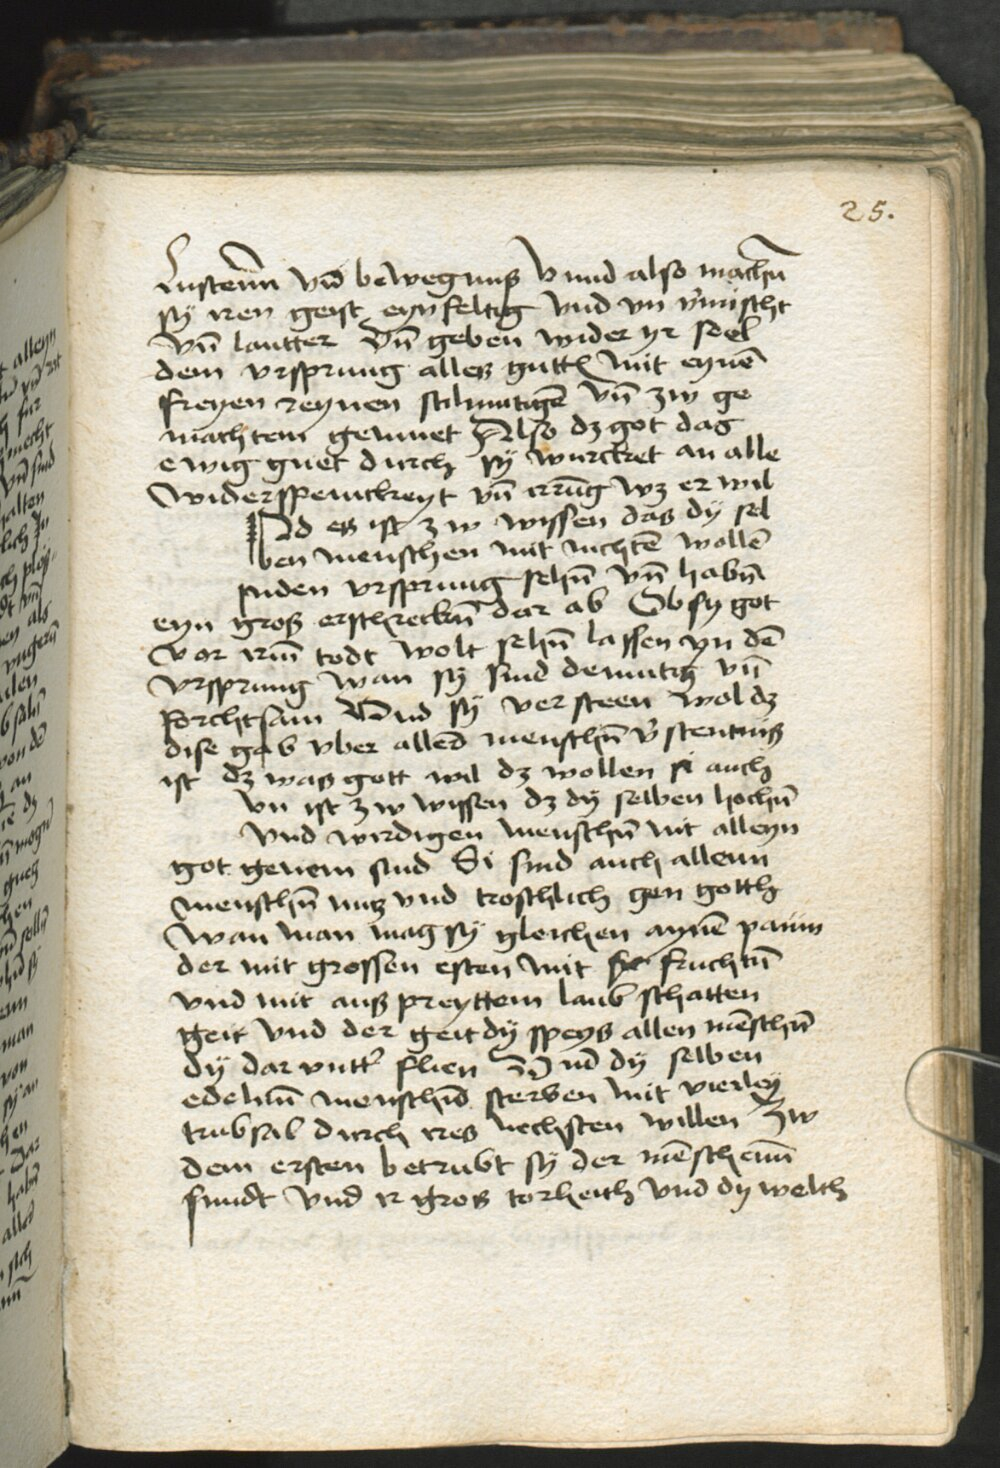 25.
Lustenn vn̄ bewegnuß vnnd also machn̄
sÿ iren geist eynfeltig vnd vn v̄mischt
vn̄ lautter Vn̄ geben wider yr seel
dem vrsprung alles gutt mit eynē
freyen reynen stilmutigē vn̄ zw ge
machtem gemuet Also dz got das
ewig guet durch sÿ wurcket an alle
widerspenickeyt vn̄ irrūg wz er wil
Vnd es ist zw wissen das dÿ sel
ben menschen mit nichtē wollē
jnden vrsprung sehn̄ vn̄ habn̄
eyn groß erschreckn̄ dar ab Ob sy got
vor irm̄ todt wolt sehn̄ lassen yn dē
vrsprung wan sÿ sind demutig vn̄
forchtsam Vnd sÿ versteen wol dz
dise gab vber allen̄ menschn̄ v̄stentnuß
ist dz was gott wil dz wollen si auch
vn ist zw wissen dz dÿ selben hochn̄
vnd wirdigen menschn̄ nit alleyn
got genem sind Si sind auch allenn
menschn̄ nutz vnd trostlich gen gotth
wan man mag sÿ gleichen aynē paüm
der mit grossen esten mit fruchtn̄
vnd mit auß preyttem laub schatten
geit vnd der geit dÿ speyß allen mēschn̄
dÿ dar vntt' flien Vnd dÿ selben
edelnn̄ menschn̄ sterben mit vierley
trubsal durch ires nechsten willen Zw
dem ersten betrubt sÿ der mēschenn̄
sundt vnd ir groß torheith vnd dy welth